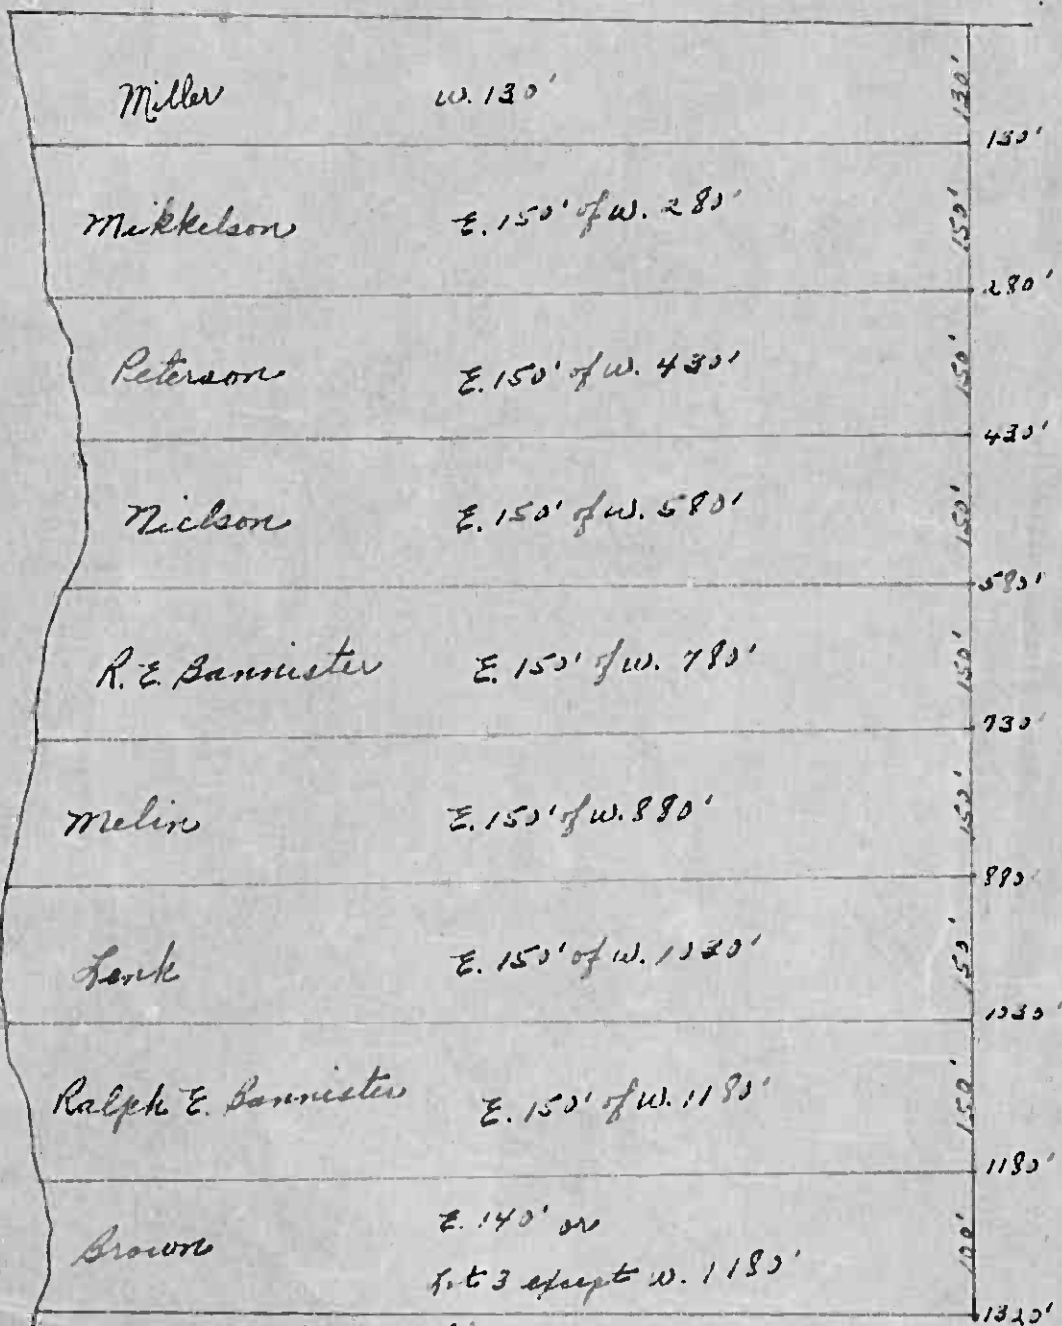 Miller w. 130' 130'
130'
Mikkelson E. 150' of w. 280' 150'
280'
Peterson E. 150' of w. 430' 150'
430'
Nielson E. 150' of w. 580' 150'
580'
R. E. Bannister E. 150' of w. 780' 150'
730'
Melin E. 150' of w. 880' 150'
880'
Lenk E. 150' of w. 1030' 150'
1030'
Ralph E. Bannister E. 150' of w. 1180' 150'
1180'
Brown E. 140' or 100'
Lot 3 except w. 1180'
1320'